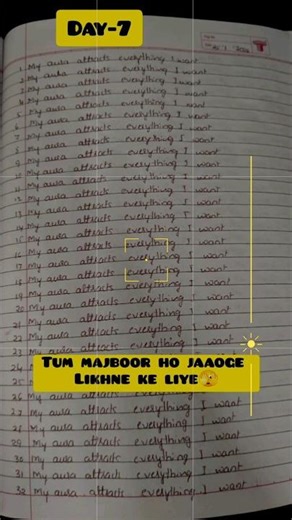 DAY-7
1. My aura attracts everything I want
2. My aura attracts everything I want
3. My aura attracts everything I want
4. My aura attracts everything I want
5. My aura attracts everything I want
6. My aura attracts everything I want
7. My aura attracts everything I want
8. My aura attracts everything I want
9. My aura attracts everything I want
10. My aura attracts everything I want
11. My aura attracts everything I want
12. My aura attracts everything I want
13. My aura attracts everything I want
14. My aura attracts everything I want
15. My aura attracts everything I want
16. My aura attracts everything I want
17. My aura attracts everything I want
18. My aura attracts everything I want
19. My aura attracts everything I want
20. My aura attracts everything I want
21. My aura attracts everything I want
22. My aura attracts everything I want
23. My aura attracts everything I want
TUM MAJBOOR HO JAAOGE
LIKHNE KE LIYE🫣
26. My aura attracts everything I want
27. My aura attracts everything I want
28. My aura attracts everything I want
29. My aura attracts everything I want
30. My aura attracts everything I want
31. My aura attracts everything I want
32. My aura attracts everything I want